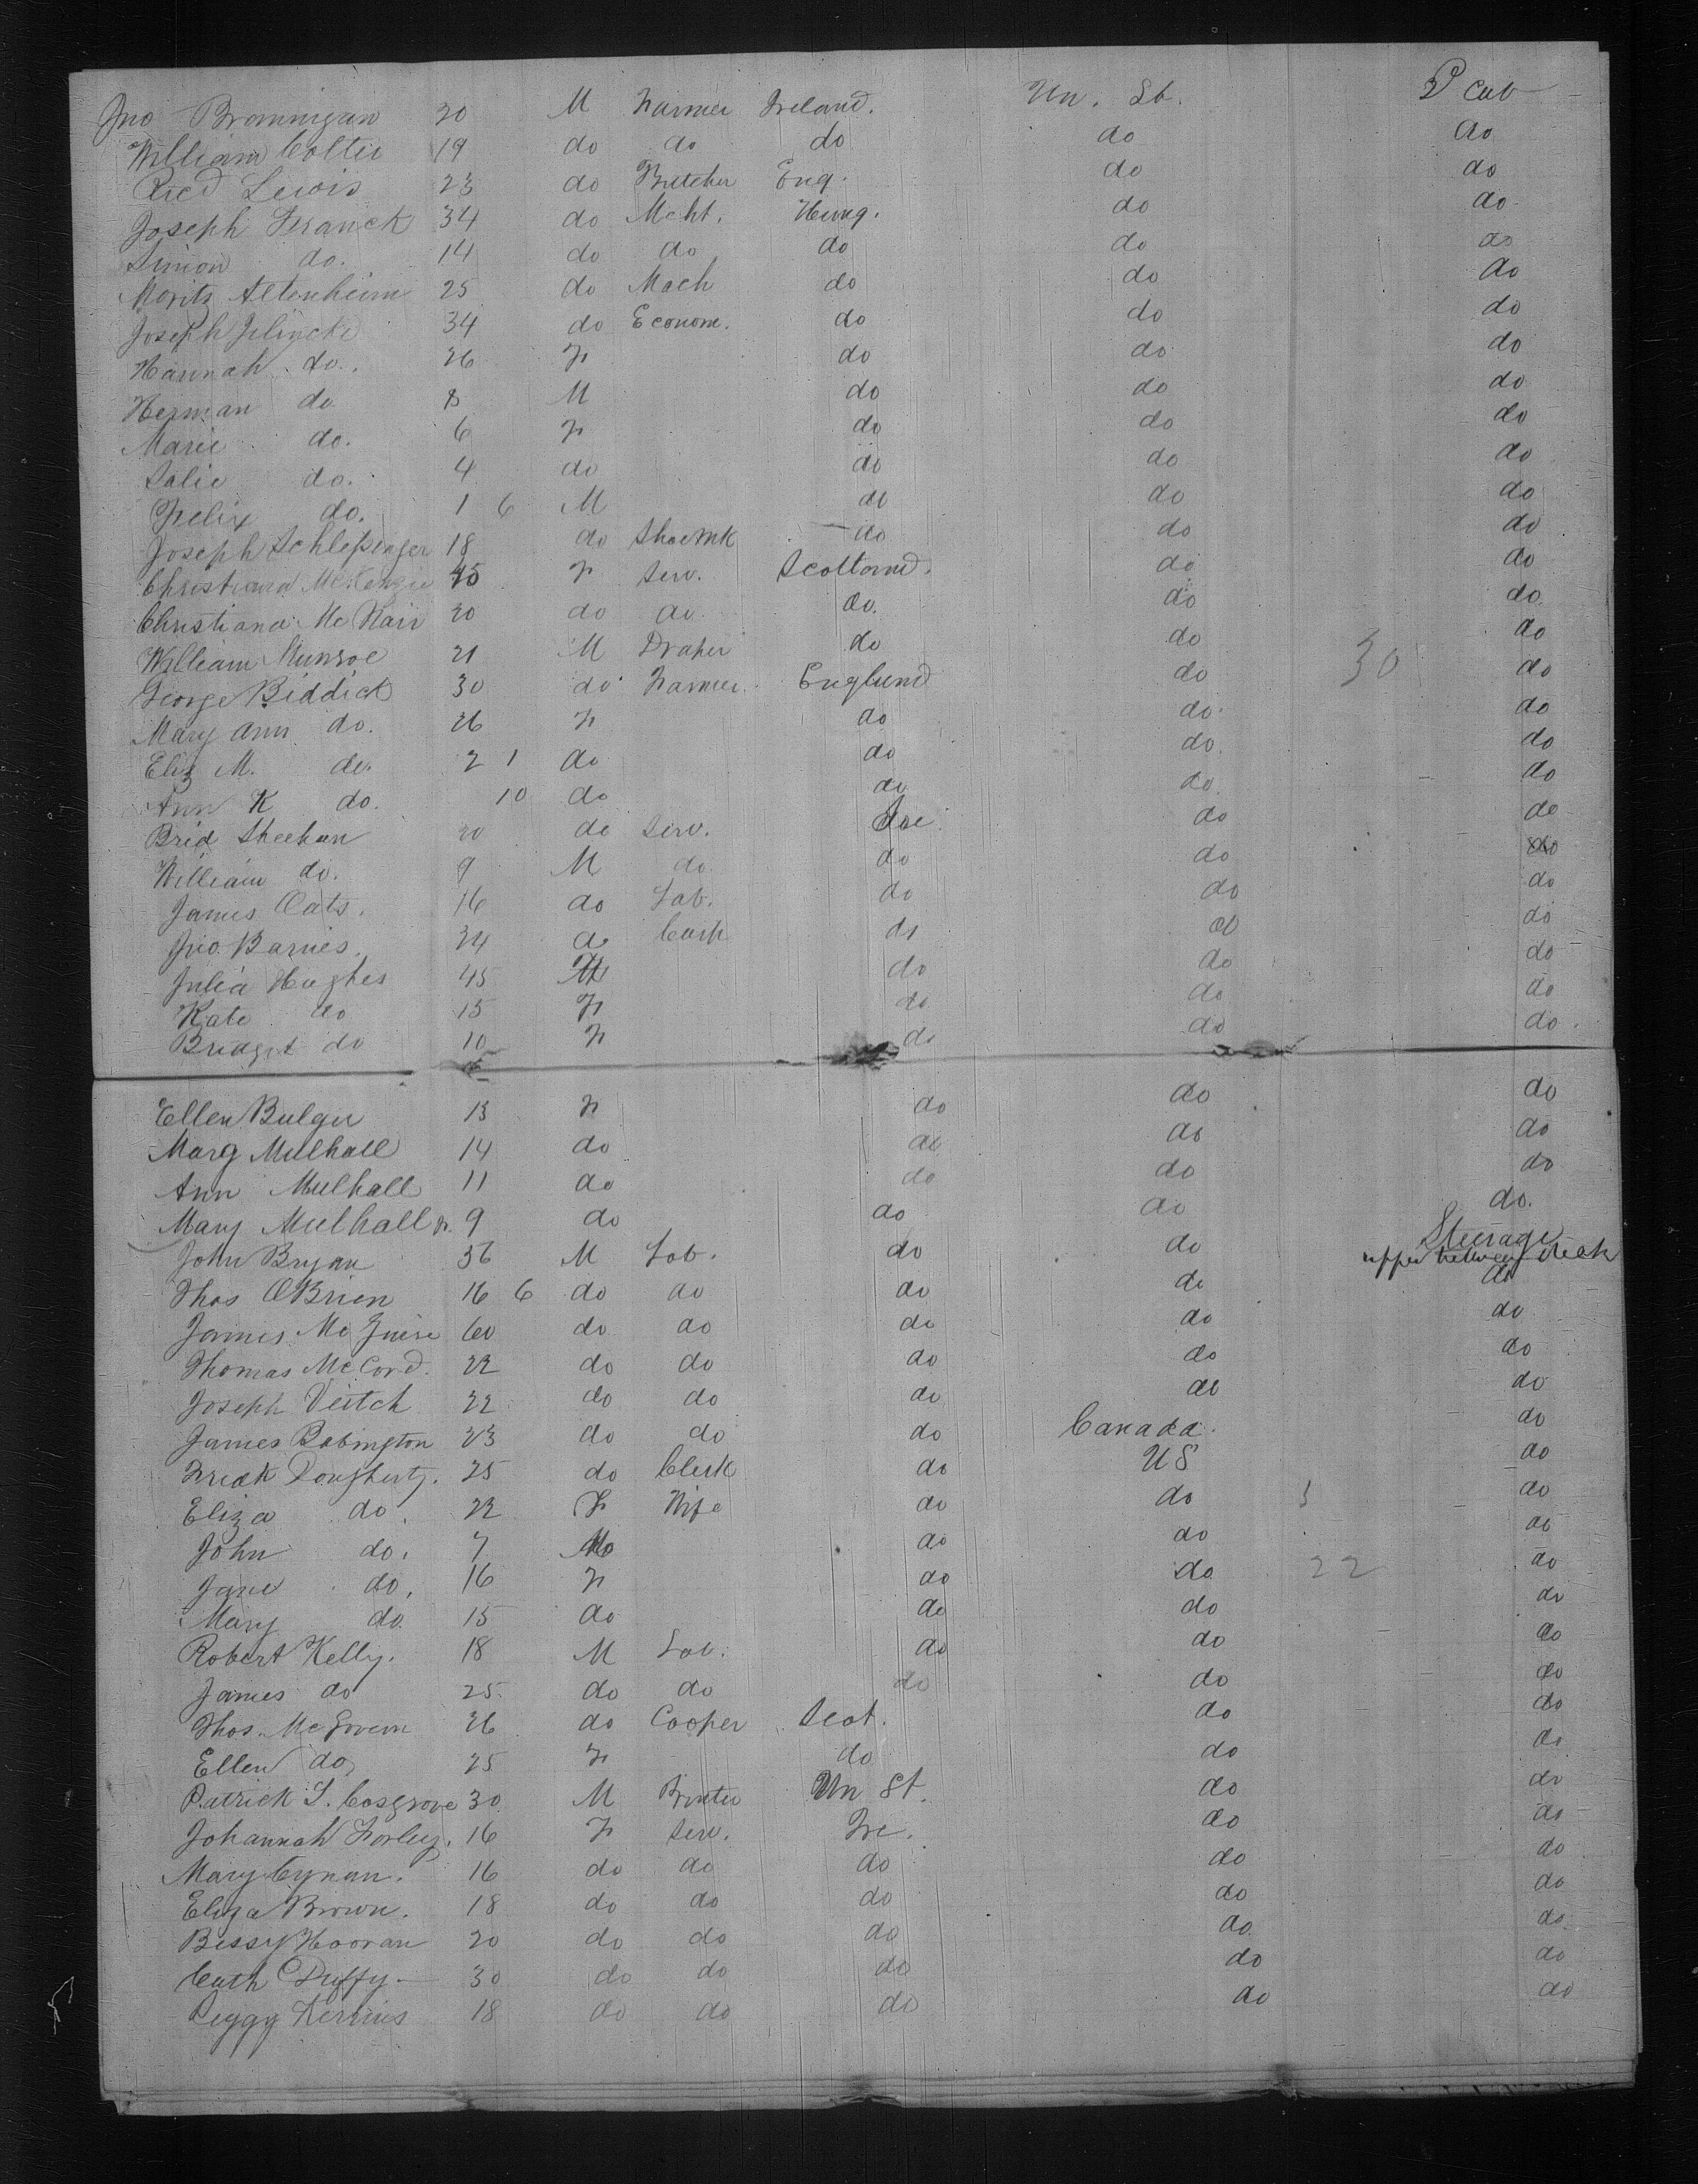 Jno Brannigan 20 M Farmer Ireland. Un. St. 2 Cab
William Colter 19 do do do do do
Rred Lewis 23 do Butcher Eng. do do
Joseph Franck 34 do Mcht. Hung. do do
Simon do. 14 do do do do do
Moritz Altenheim 25 do Mach do do do
Joseph 34 do Econom. do do do
Hannah do. 26 F do do do
Herman do 8 M do do do
Marie do. 6 F do do do
Salie do. 4 do do do do
Felix do. 1 6 M do do do
Joseph Schlesinger 18 do Shoemk do do do
Christiana McKenzie 45 F Serv. Scotland. do do
Christiana McNair 20 do do do. do do
William Munroe 21 M Draper do do 30 do
George Biddick 30 do Farmer England do do
Mary Ann do. 26 F do do do
Eliz M. do. 2 1 do do do. do
Ann K do. 10 do do do do
Brid Sheehan 20 do Serv. Ire do do
William do. 9 M do do do do
James Oats. 16 do Lab. do do do
Jno Barnes. 34 do Carp do do do
Julia Hughes 45 do do do
Kate do 15 F do do do
Bridget do 10 F do do do.
Ellen Bulger 13 F do do do
Marg Mulhall 14 do do do do
Ann Mulhall 11 do do do do
Mary Mulhall 9 do do do do.
John Bryan 36 M Lab. do do Steerage upper between deck
Thos OBrien 16 6 do do do do do
James McGuire 60 do do do do do
Thomas McCord. 22 do do do do do
Joseph Veitch 22 do do do do do
James Babington 23 do do do Canada. do
Fredk Dougherty. 25 do Clerk do US do
Eliza do. 22 F Wife do do do
John do. 7 M do do do
Jane do. 16 F do do 22 do
Mary do. 15 do do do do
Robert Kelly. 18 M Lab. do do do
James do 25 do do do do do
Thos. McGovern 26 do Cooper Scot. do do
Ellen do 25 F do do do
Patrick J. Cosgrove 30 M Printer Un St. do do
Johannah 16 F Serv. Ire. do do
Mary Cynan. 16 do do do do do
Eliza Brown. 18 do do do do do
Bessy Hooran 20 do do do do do
Cath Duffy 30 do do do do do
Peggy Kerrins 18 do do do do do